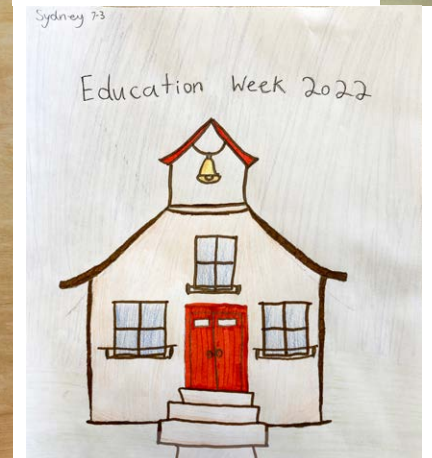 Sydney 7-3
Education Week 2022